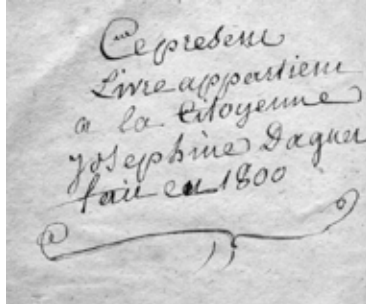 Ce present
Livre appartient
a la Citoyenne
Josephine Daguer
fait en 1800